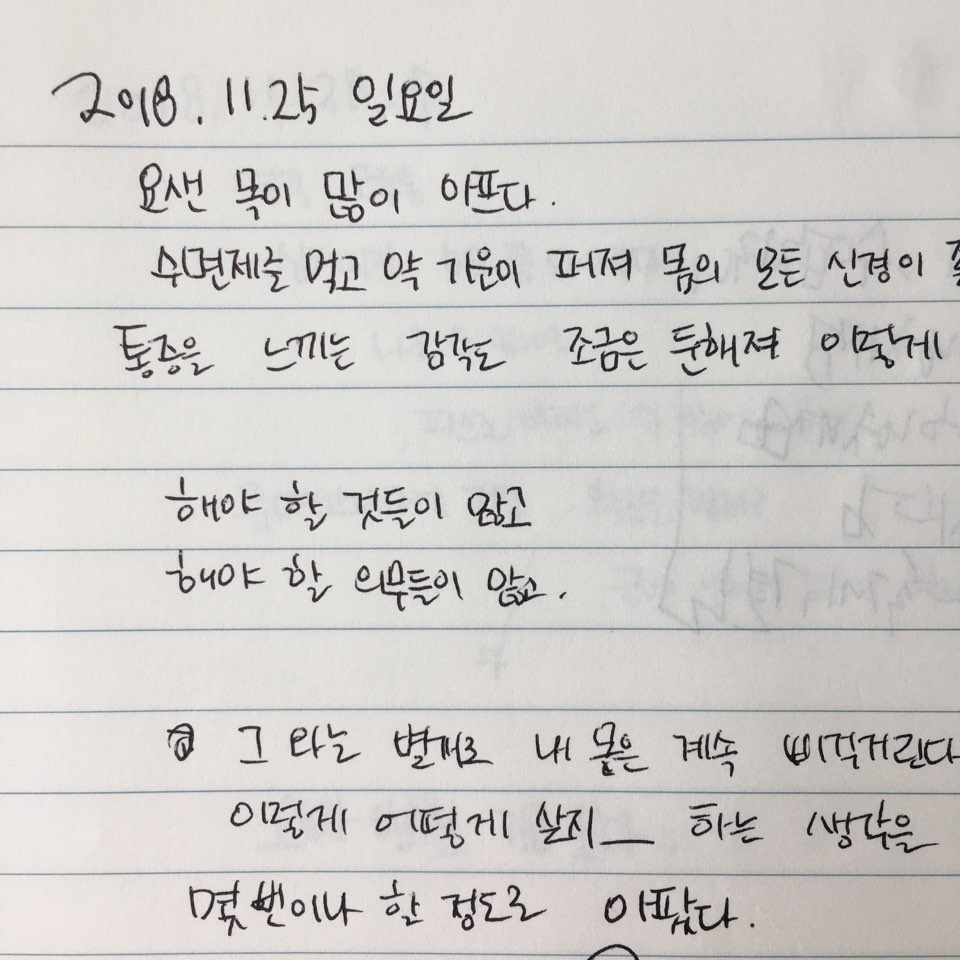 2018. 11. 25 일요일
요샌 목이 많이 아프다.
수면제를 먹고 약 기운이 퍼져 몸의 모든 신경이
통증을 느끼는 감각도 조금은 둔해져 이렇게
해야 할 것들이 많고
해야 할 의무들이 많고.
그 와는 별개로 내 몸은 계속 삐걱거린다
이렇게 어떻게 살지_ 하는 생각을
몇 번이나 할 정도로 아팠다.